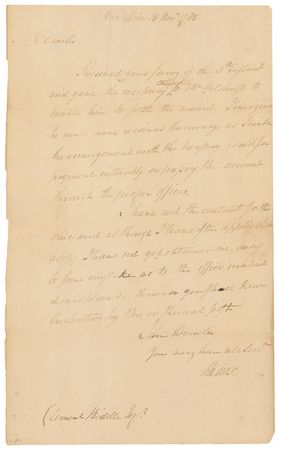 War Office 16 Nov. 1785
Dear Sir
I received your favor of the 5th instant
and gave the necessary to Mr Gilchrist to
enable him to settle the
he must have received the money, as I made
the arrangement with the treasury board for
payment instantly on passing the account
through the proper offices.
I have not the contract for the
and although I have often applied for
I have not yet obtained one, owing
to some mistake as to the office in which
it was placed. However you shall know
the contents by this or the next post
I am Dear Sir
Your very humble Servt
Clement Biddle Esqr.